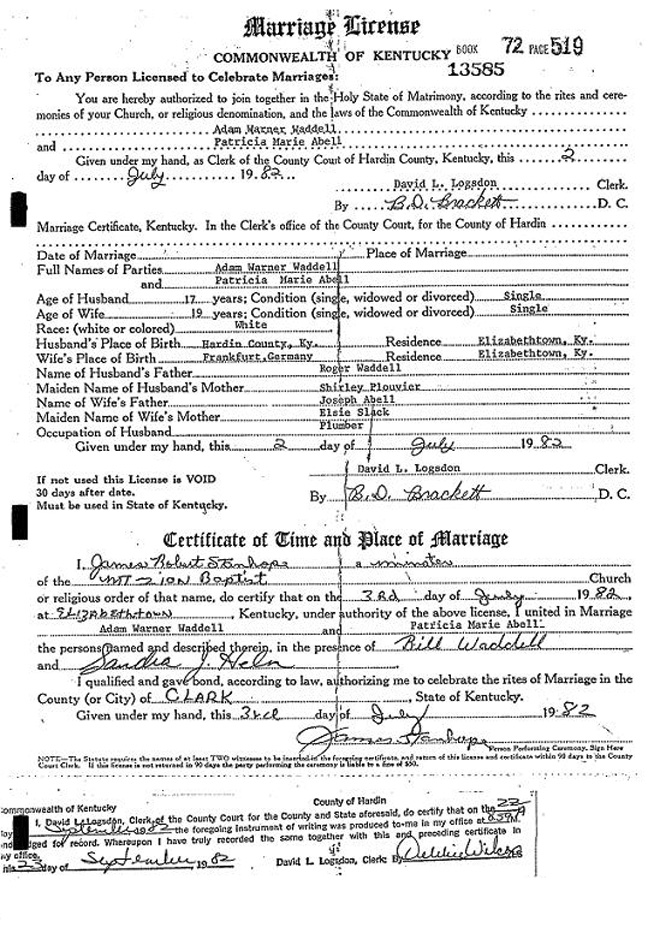 Marriage License
COMMONWEALTH OF KENTUCKY BOOK 72 PAGE 519
13585
To Any Person Licensed to Celebrate Marriages:
You are hereby authorized to join together in the Holy State of Matrimony, according to the rites and cere-
monies of your Church, or religious denomination, and the laws of the Commonwealth of Kentucky
Adam Warner Waddell
and Patricia Marie Abell
Given under my hand, as Clerk of the County Court of Hardin County, Kentucky, this 2
day of July 1982
David L. Logsdon Clerk.
By B.D. Brackett D. C.
Marriage Certificate, Kentucky. In the Clerk's office of the County Court, for the County of Hardin
Date of Marriage Place of Marriage
Full Names of Parties Adam Warner Waddell
and Patricia Marie Abell
Age of Husband 17 years; Condition (single, widowed or divorced) Single
Age of Wife 19 years; Condition (single, widowed or divorced) Single
Race: (white or colored) White
Husband's Place of Birth Hardin County, Ky. Residence Elizabethtown, Ky.
Wife's Place of Birth Frankfurt,Germany Residence Elizabethtown, Ky.
Name of Husband's Father Roger Waddell
Maiden Name of Husband's Mother Shirley Plouvier
Name of Wife's Father Joseph Abell
Maiden Name of Wife's Mother Elsie Slack
Occupation of Husband Plumber
Given under my hand, this 2 day of July 1982
David L. Logsdon Clerk.
If not used this License is VOID
30 days after date.
Must be used in State of Kentucky.
By B.D. Brackett D. C.
Certificate of Time and Place of Marriage
I, James Robert Stanhope a minister
of the MT-Zion Baptist Church
or religious order of that name, do certify that on the 3rd day of July 1982,
at Elizabethtown, Kentucky, under authority of the above license, I united in Marriage
Adam Warner Waddell and Patricia Marie Abell
the persons named and described therein, in the presence of Bill Waddell
and Sandra J. Helm
I qualified and gave bond, according to law, authorizing me to celebrate the rites of Marriage in the
County (or City) of CLARK, State of Kentucky.
Given under my hand, this 3rd day of July 1982
James Stanhope
Person Performing Ceremony, Sign Here
NOTE—The Statute requires the names of at least TWO witnesses to be inserted in the foregoing certificate, and return of this license and certificate within 90 days to the County
Court Clerk. If this license is not returned in 90 days the party performing the ceremony is liable to a fine of $50.
County of Hardin
ommonwealth of Kentucky
I, David L. Logsdon, Clerk of the County Court for the County and State aforesaid, do certify that on the 22
day September 1982 the foregoing instrument of writing was produced to me in my office at
dged for record. Whereupon I have truly recorded the same together with this and preceding certificate in
my office.
his 23 day of September 1982 David L. Logsdon, Clerk By Debbie Wilcox